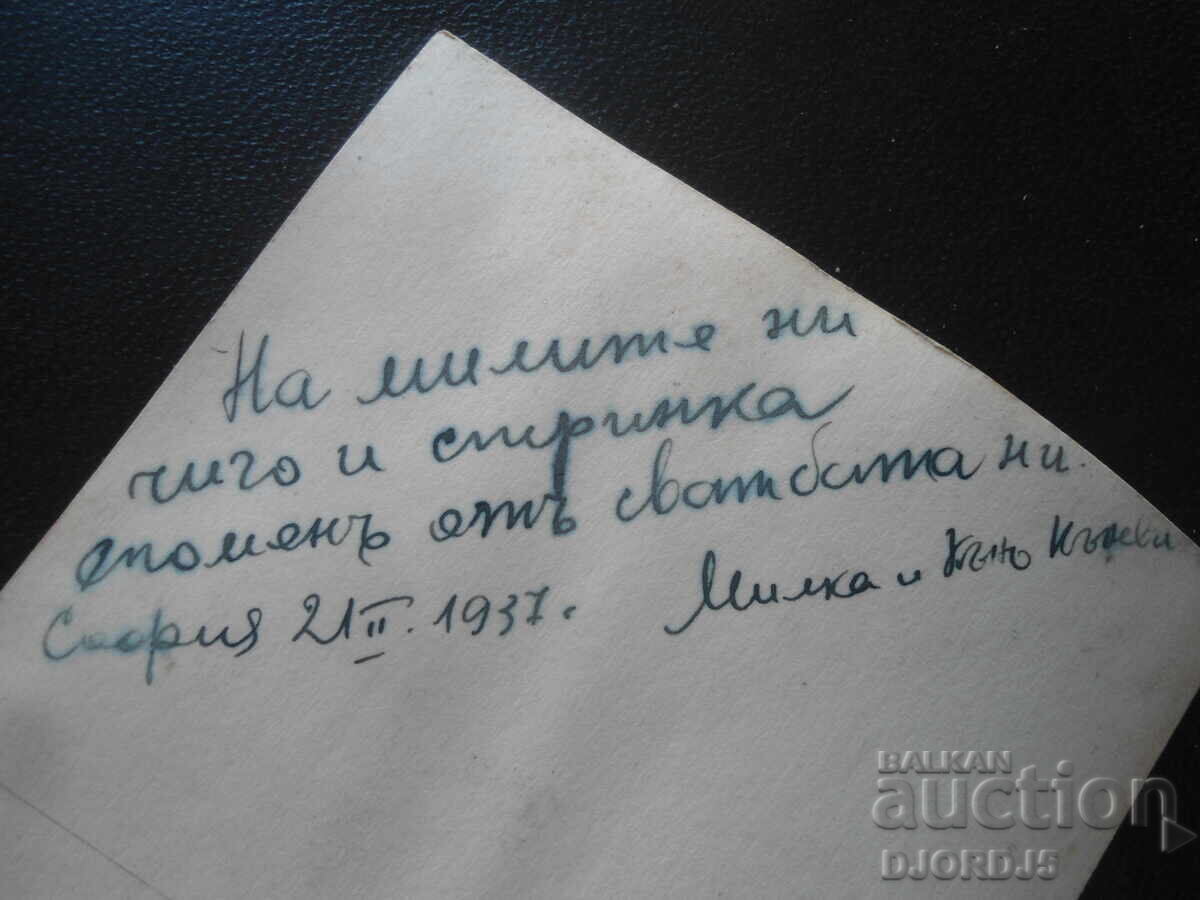 На милите ни
чиго и стринка
споменъ отъ сватбата ни.
София 21 II. 1937.
Милка и Кънчо Кънчеви
BALKAN
auction
DJORDJ5